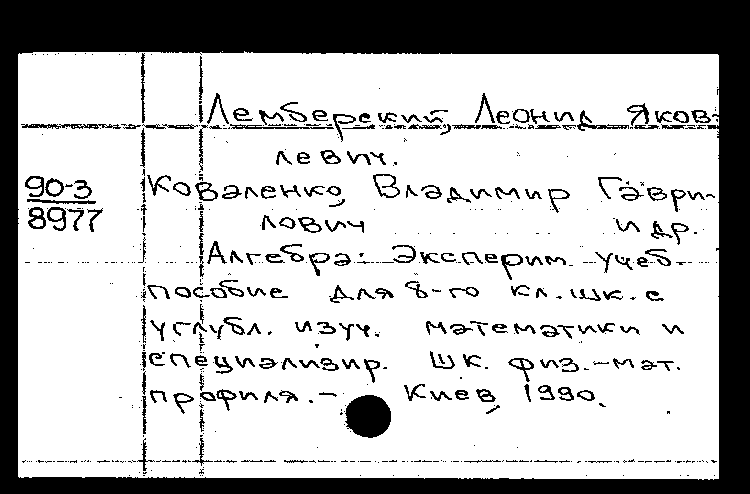 Лемберский, Леонид Яков-
левич.
90-3
8977
Коваленко, Владимир Гаври-
лович и др.
Алгебра: Эксперим. учеб.
пособие для 8-го кл. шк. с
углубл. изуч. математики и
специализир. шк. физ.-мат.
профиля.- Киев, 1990.